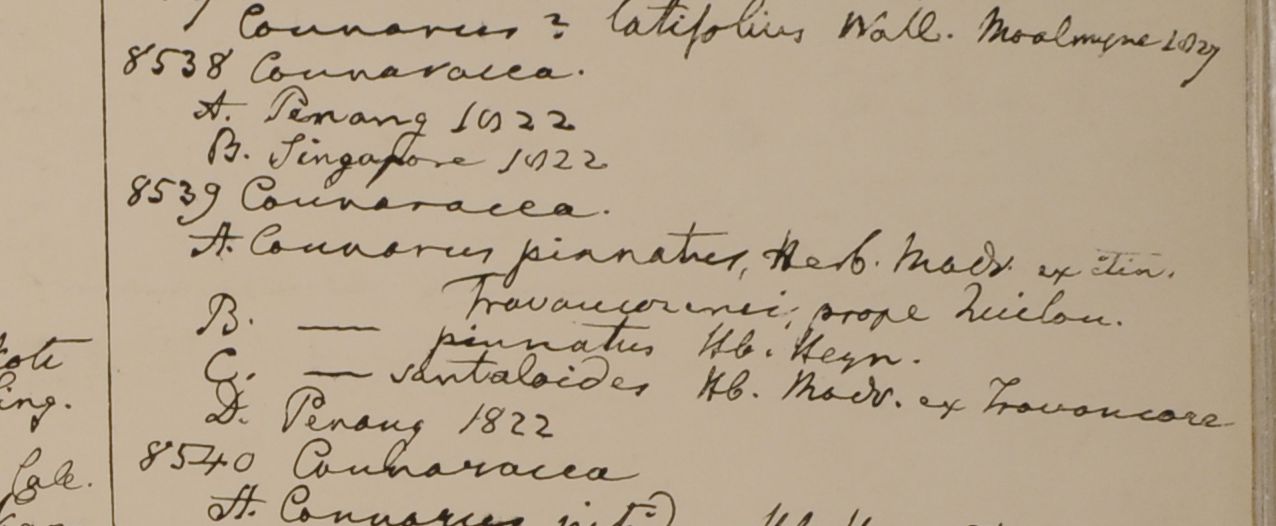 Connarus? latifolius Wall. Moalmyne 1827
8538 Connaracea.
A. Penang 1822
B. Singapore 1822
8539 Connaracea.
A. Connarus pinnatus, Herb. Madr. ex itin.
Travancorensi, prope Quilon.
B. — pinnatus Hb. Heyn.
C. — santaloides Hb. Madr. ex Travancore
D. Penang 1822
8540 Connaracea
A. Connarus
ing.
Cale.